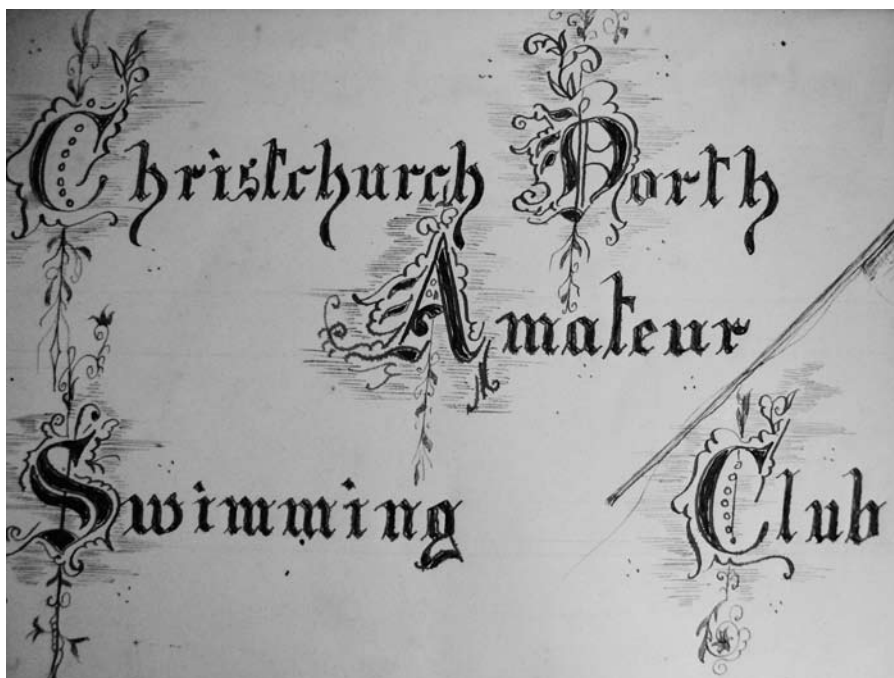 Christchurch North
Amateur
Swimming Club